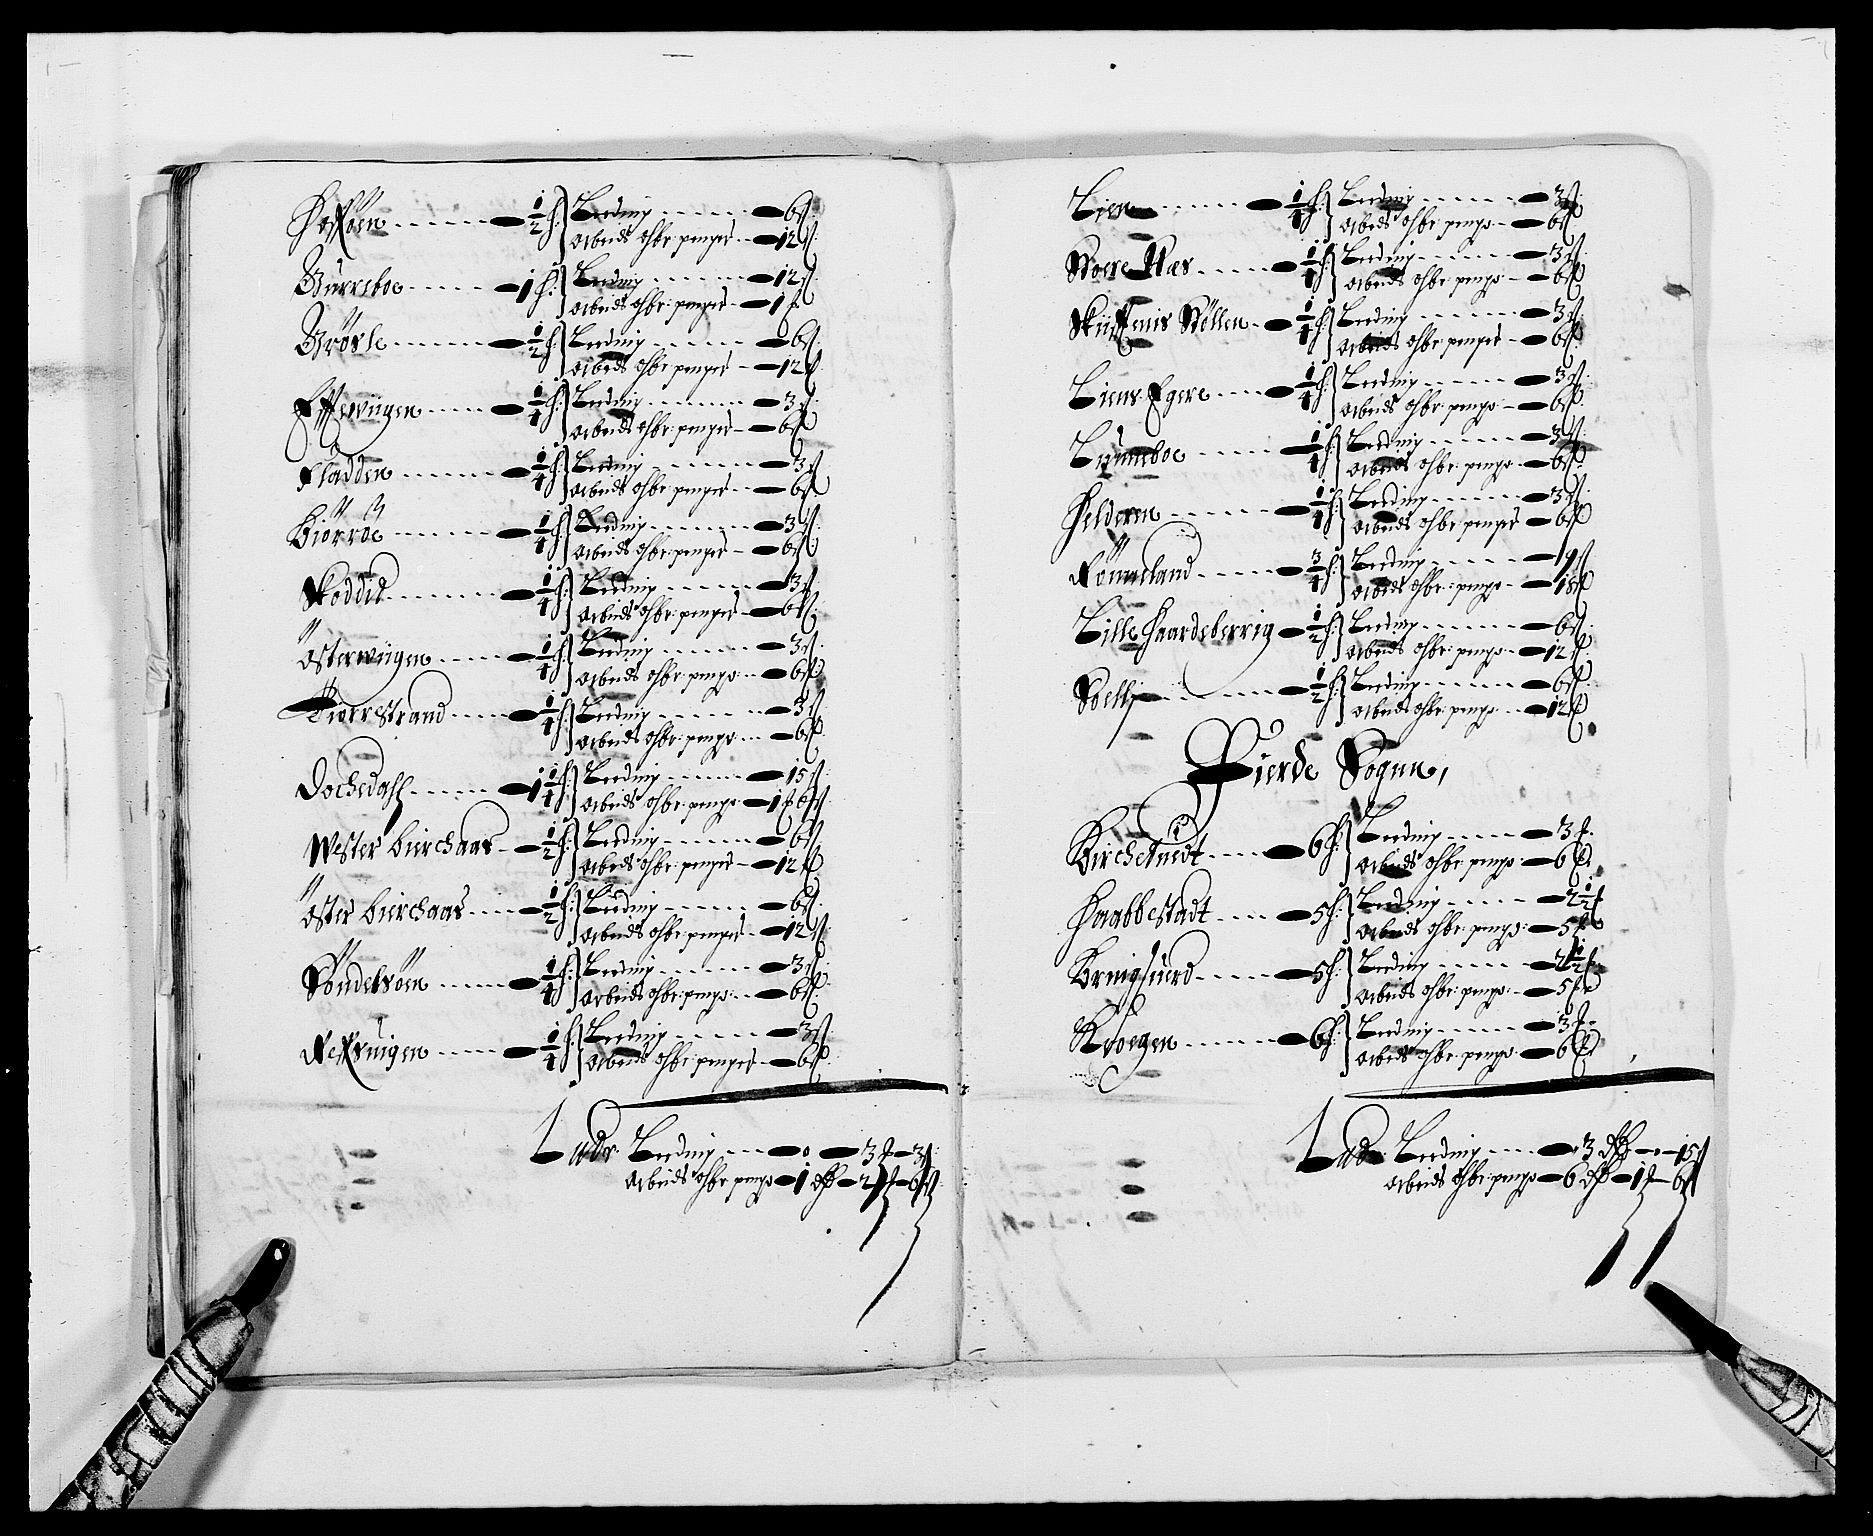 Koxöen ...... ½ h: Leeding ...... 6 ß
arbeids ohbr: penger .. 12 ß
Burreboe ...... 1 h: Leeding ...... 12 ß
arbeids ohbr: penger – 1 f
Brösle ...... ½ h: Leeding ...... 6 ß
arbeids ohbr: penger – 12 ß
Effewiigen ...... ¼ h: Leeding ...... 3 ß
arbeids ohbr: penger – 6 ß
Fladden ...... ¼ h: Leeding ...... 3 ß
arbeids ohbr: penger .. 6 ß
Biörröe ...... ¼ h: Leeding ...... 3 ß
arbeids ohbr: penger – 6 ß
Skoddid ...... ¼ h: Leeding ...... 3 ß
arbeids ohbr: penger – 6 ß
Österwiigen ...... ¼ h: Leeding ...... 3 ß
arbeids ohbr: penge .. 6 ß
Tierrestrand ...... ¼ h: Leeding ...... 3 ß
arbeids ohbr: penge ... 6 ß
Dochedahl ...... 1¼ h: Leeding ...... 15 ß
arbeids ohbr: penge – 1 f 6 ß
Wester Birchaas – ½ h: Leeding ...... 6 ß
arbeids ohbr: penger – 12 ß
Öster Birchaas .... ½ h: Leeding ...... 6 ß
arbeids ohbr: penger – 12 ß
Söndelsöen ...... ¼ h: Leeding ...... 3 ß
arbeids ohbr: penge .. 6 ß
Refsuigen ...... ¼ h: Leeding ...... 3 ß
arbeids ohbr: penger – 6 ß
Ladr Leeding .... 0 – 3 f – 3 ß
arbeids ohbr penge – 1 dlr – 2 f – 6 ß
Lien ...... ¼ h: Leeding ...... 3 ß
arbeids ohbr: penge – 6 ß
Stoere Næs ...... ¼ h: Leeding ...... 3 ß
arbeids ohbr: penge – 6 ß
Skiffenis Stöllen – ¼ h: Leeding ...... 3 ß
arbeids ohbr: penger – 6 ß
Liens Egere ...... ¼ h: Leeding ...... 3 ß
arbeids ohbr: penge – 6 ß
Lunneboe ...... ¼ h: Leeding ...... 3 ß
arbeids ohbr: penge – 6 ß
Helderen ...... ¼ h: Leeding ...... 3 ß
arbeids ohbr: penger – 6 ß
Römeland ...... ¾ h: Leeding ...... 9 ß
arbeids ohbr: penge – 18 ß
Lille Haardeberrig – ½ h: Leeding ...... 6 ß
arbeids ohbr: penge – 12 ß
Soelli ...... ½ h: Leeding ...... 6 ß
arbeids ohbr: penge .. 12 ß
Fierde Sognn,
Birchetuedt ...... 6 h: Leeding ...... 3 f
arbeids ohbr: penge – 6 f
Knabbestadt ...... 5 h: Leeding ...... 2½ f
arbeids ohbr: penge – 5 f
Krnigsuerd ...... 5 h: Leeding ...... 2½ f
arbeids ohbr: penge – 5 f
Kroegen ...... 6 h: Leeding ...... 3 f
arbeids ohbr: penge – 6 f
Ladr: Leeding .... 3 dlr – . – 15 ß
arbeids ohbr: penge – 6 dlr – 1 f – 6 ß